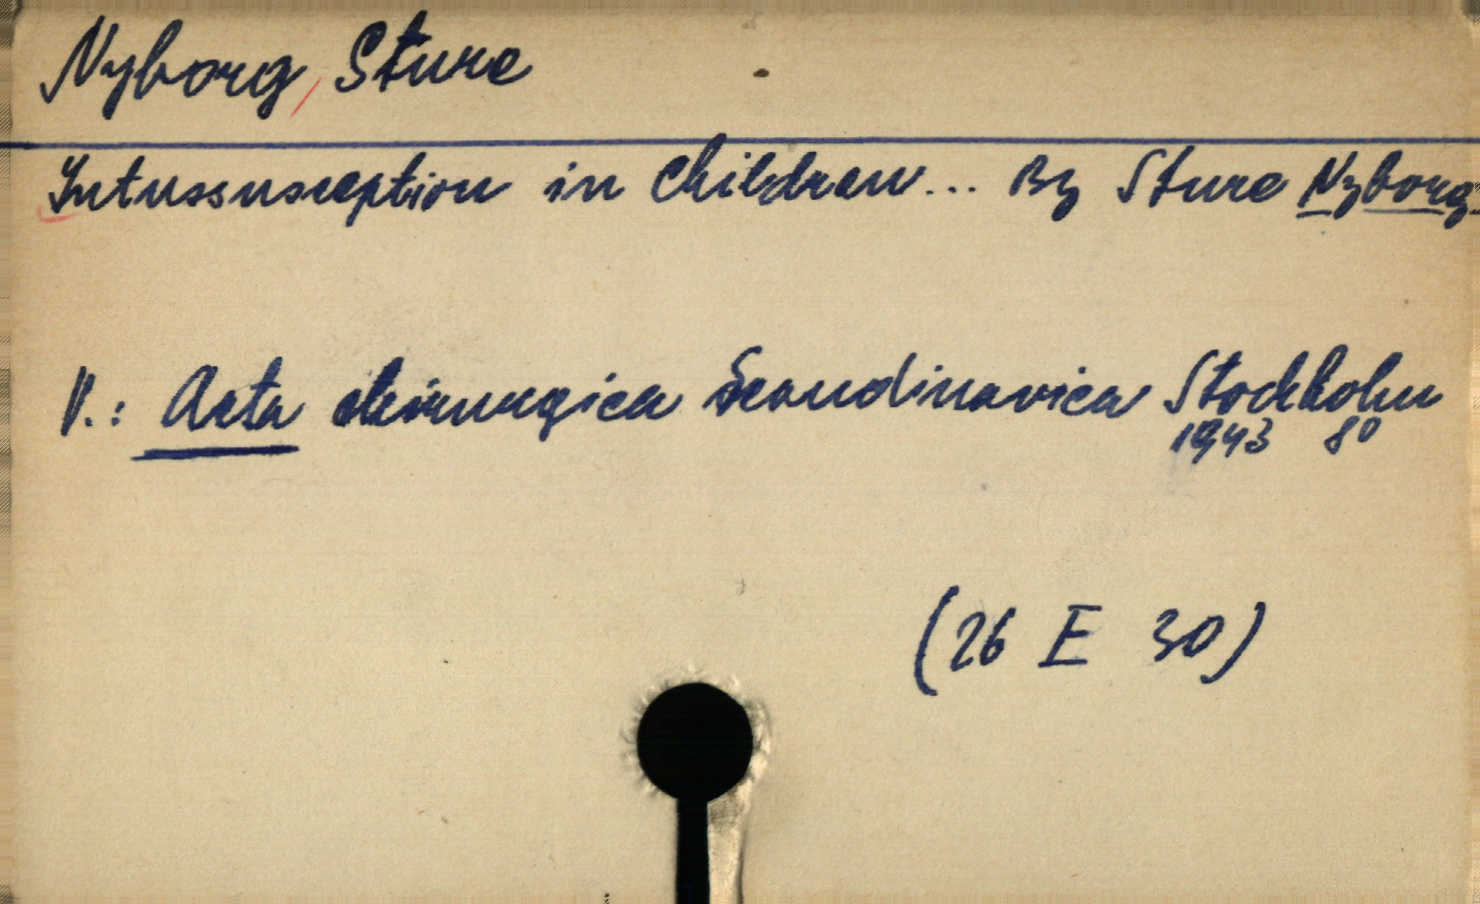 Nyborg, Sture
Intussusception in Children... By Sture Nyborg.
V.: Acta chirurgica Scandinavica Stockholm
1943 8°
(26 E 30)